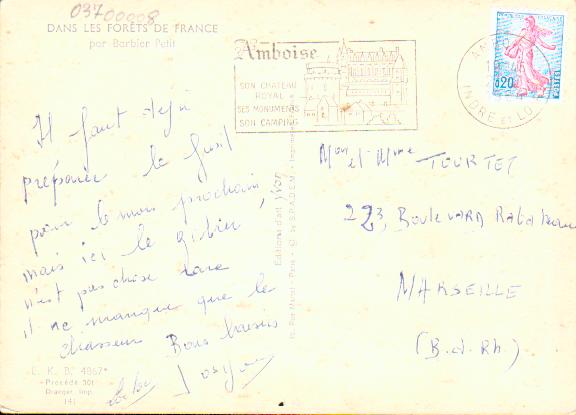 03700008
DANS LES FORÊTS DE FRANCE
par Barbier Petit
Amboise
SON CHATEAU
ROYAL
SES MONUMENTS
SON CAMPING
0,20
INDRE ET LO
Il faut déjà
préparer le fusil
pour le mois prochain
mais ici le gibier,
n'est pas chose rare
il ne manque que le
chasseur Bons baisers
Josy
Mon et Mme TOURTET
223, Boulevard
MARSEILLE
(B.d.Rh.)
Editions d'art YVON
E. K. B. 4867*
Procédé 301
Draeger, Imp.
141